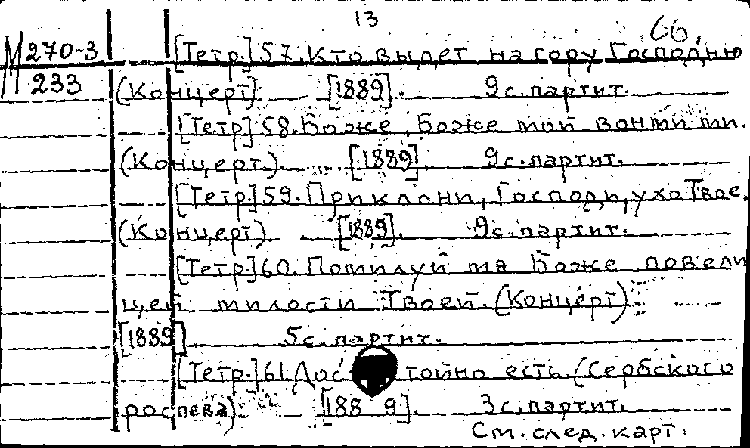 13
66.
М 270-3 [Тетр] 57. Кто выдет на гору Господню
233 (Концерт) [1889]. 9 с. партит.
[Тетр] 58. Боже, Боже мой вонми ми.
(Концерт) [1889] 9 с. партит.
[Тетр] 59. Приклони, Господи, ухо Твое.
(Концерт) [1889]. 9 с. партит.
[Тетр] 60. Помилуй мя Боже по вели
цей милости Твоей. (Концерт)
[1889] 5 с. партит.
[Тетр.] 61. Достойно есть. (Сербского
роспева) [1889]. 3 с. партит.
См. след. карт.